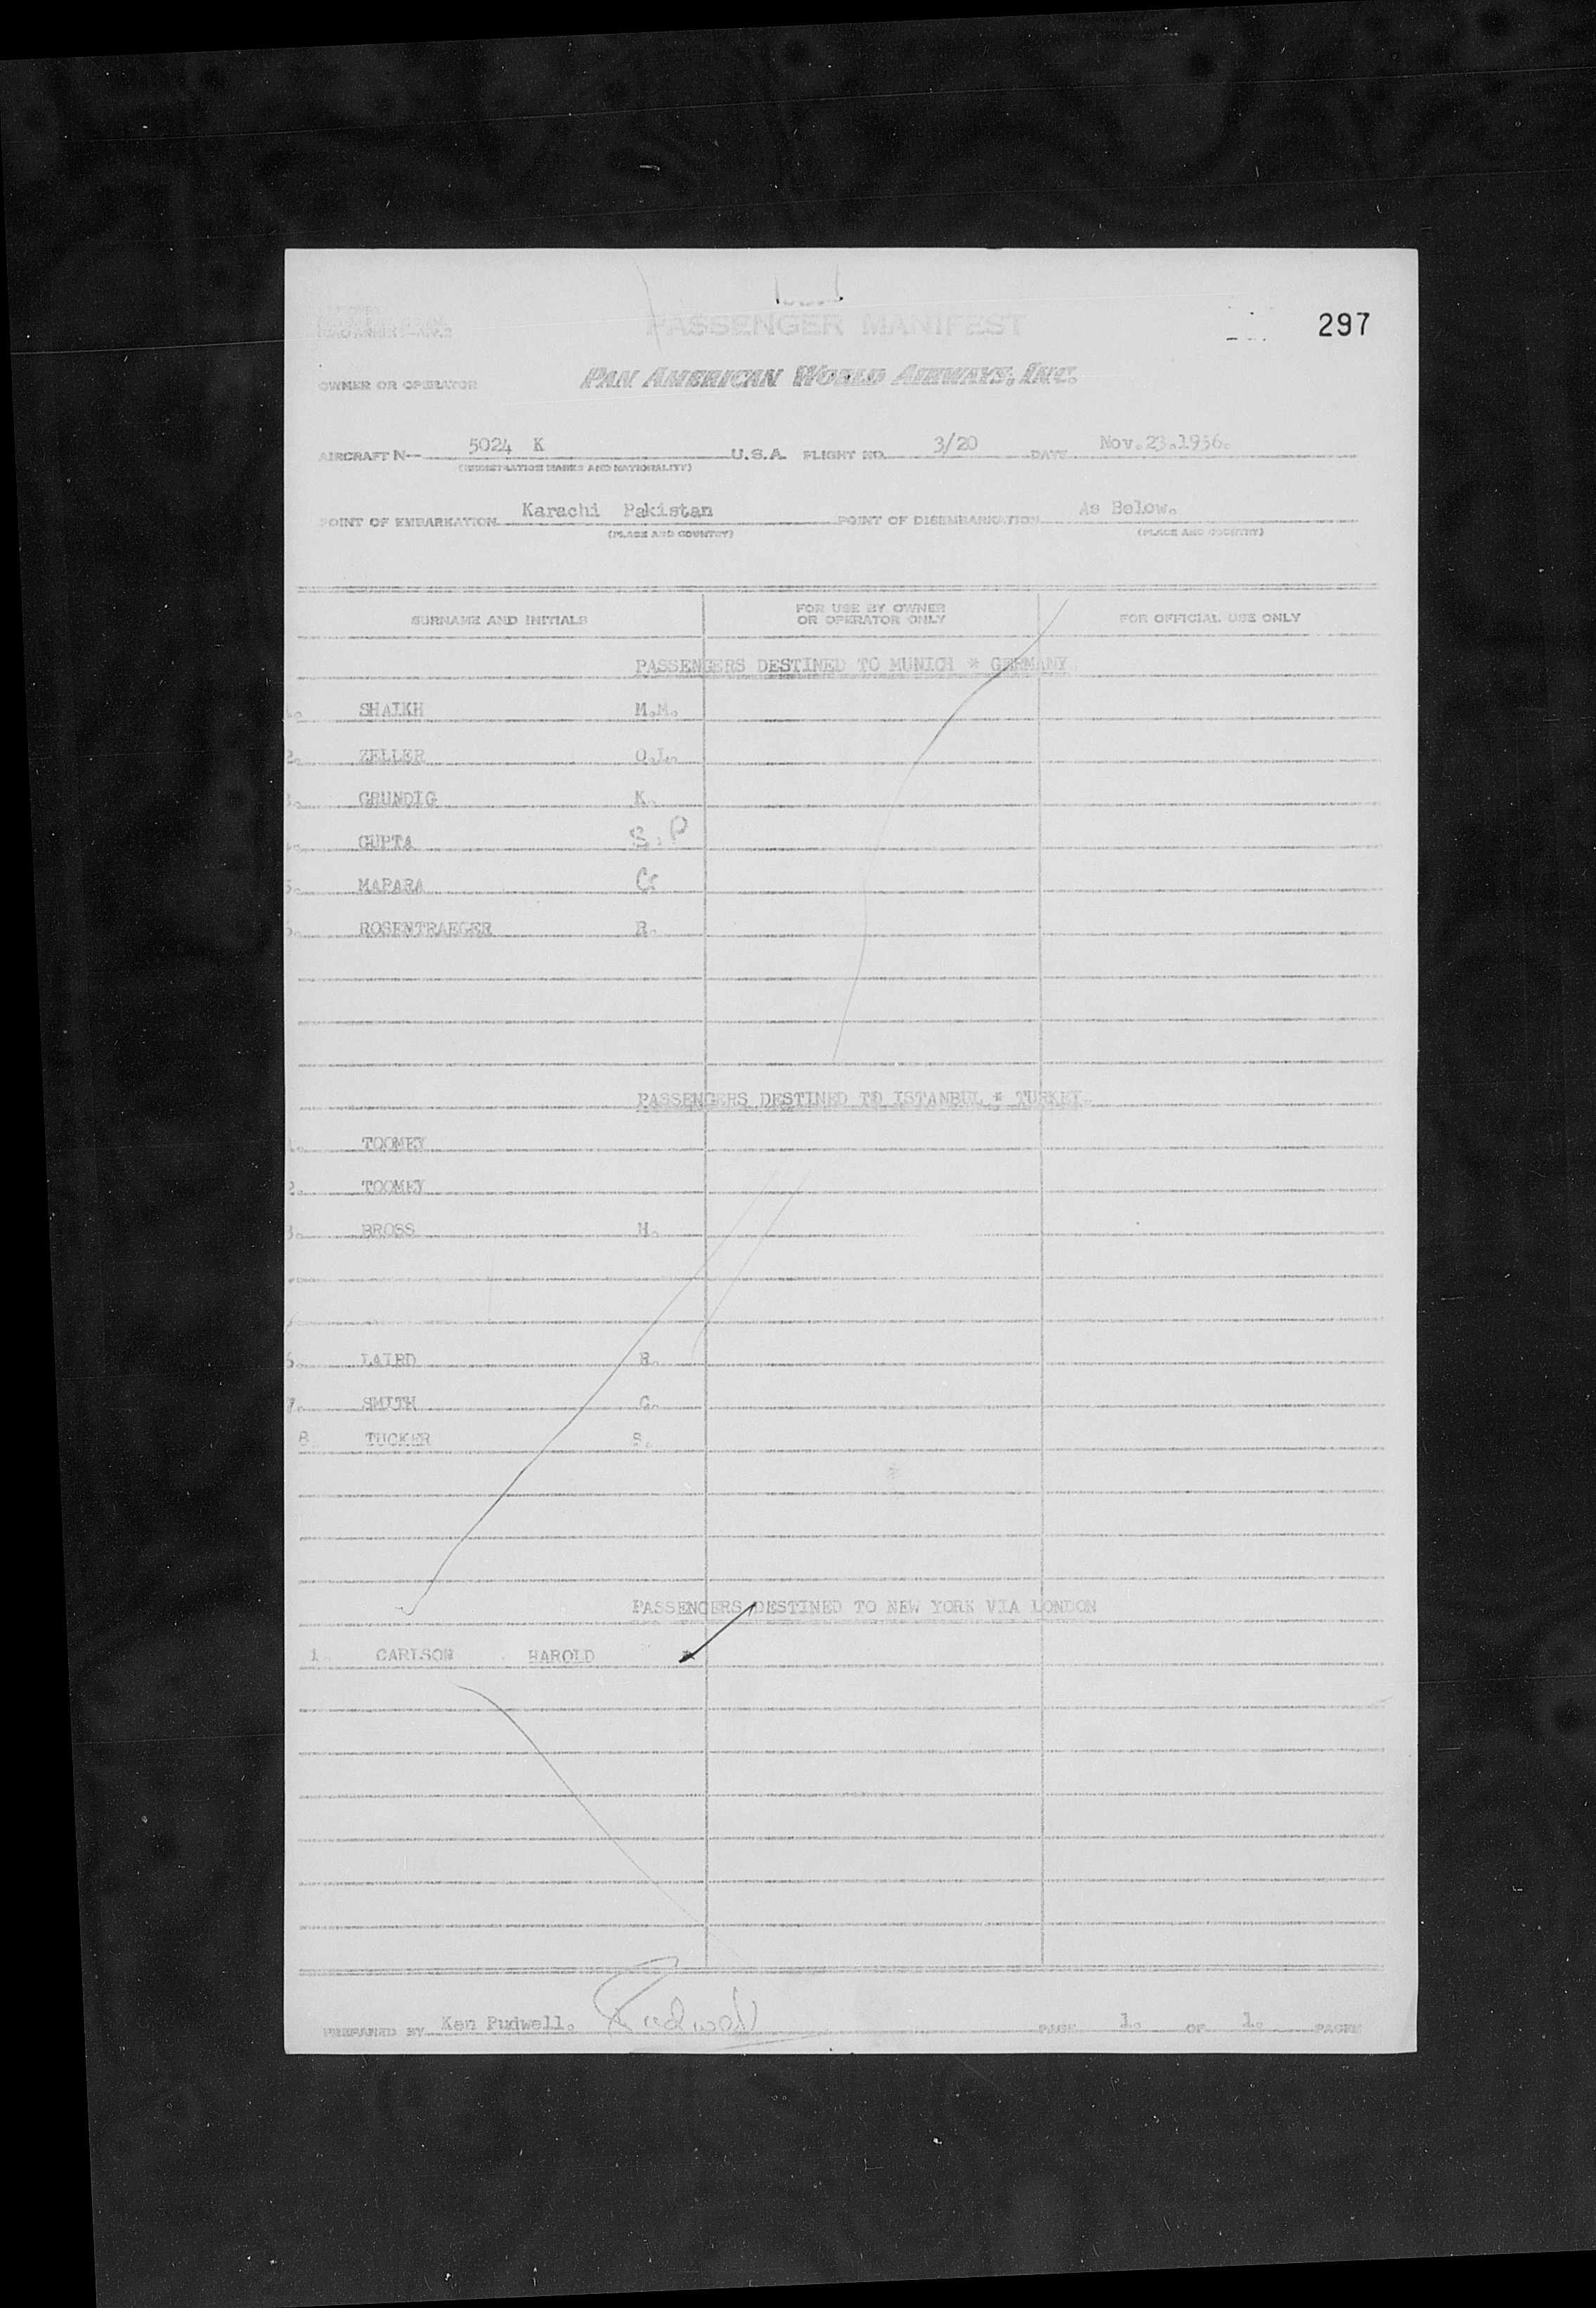 PASSENGER MANIFEST
297
OWNER OR OPERATOR PAN AMERICAN WORLD AIRWAYS, INC.
AIRCRAFT N- 5024 K U.S.A. FLIGHT NO. 3/20 DATE Nov.23.1956.
(REGISTRATION MARKS AND NATIONALITY)
POINT OF EMBARKATION Karachi Pakistan POINT OF DISEMBARKATION As Below.
(PLACE AND COUNTRY) (PLACE AND COUNTRY)
SURNAME AND INITIALS FOR USE BY OWNER OR OPERATOR ONLY FOR OFFICIAL USE ONLY
PASSENGERS DESTINED TO MUNICH * GERMANY
1. SHAIKH M.M.
2. ZELLER O.L.
3. GRUNDIG K.
4. GUPTA S.P
5. MAPARA
6. ROSENTRAEGER R.
PASSENGERS DESTINED TO ISTANBUL * TURKEY.
1. TOOMEY
2. TOOMEY
3. BROSS H.
6. LAIRD R.
7. SMITH G.
8. TUCKER S.
PASSENGERS DESTINED TO NEW YORK VIA LONDON
1. CARLSON HAROLD *
PREPARED BY Ken Pudwell. PAGE 1. OF 1. PAGES